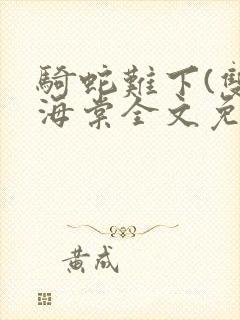 騎蛇難下(雙
海棠全文免
黄成